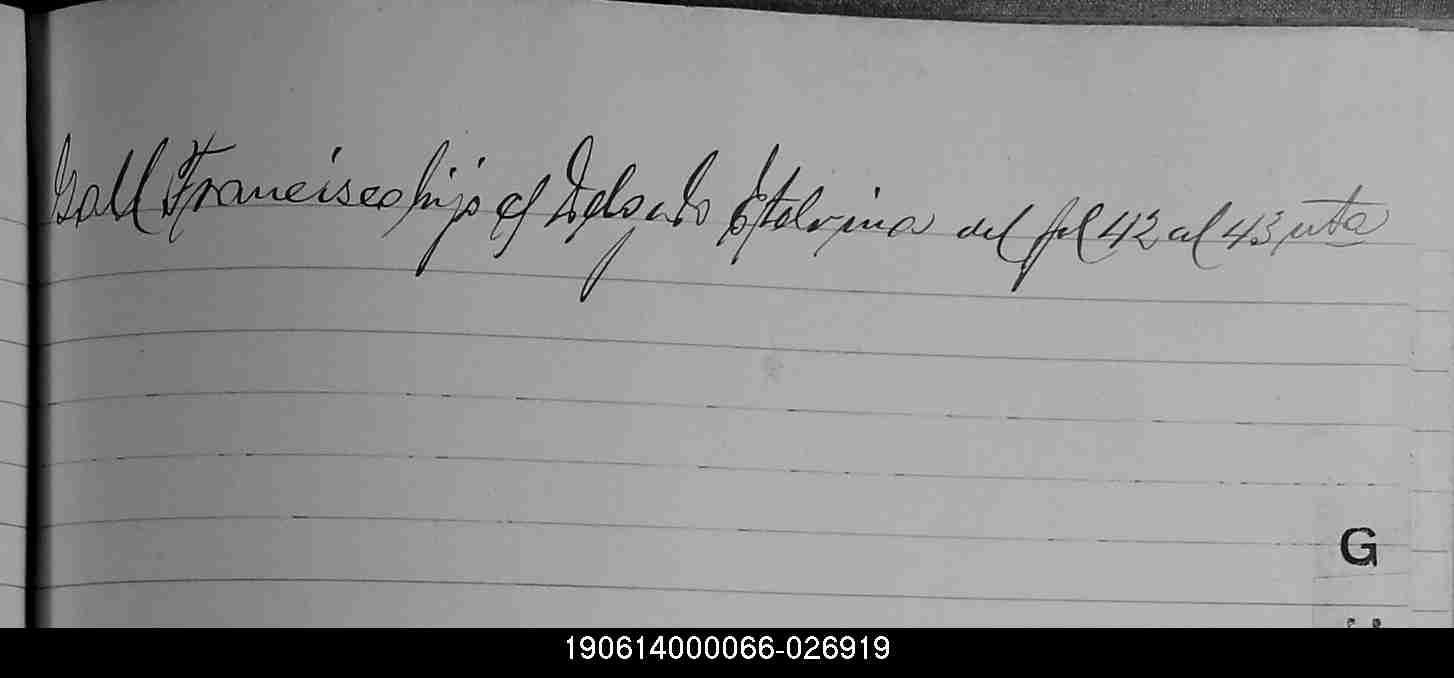 Gall Francisco hijo y Delgado Etelvina del fol 42 al 43 vta
G
190614000066-026919